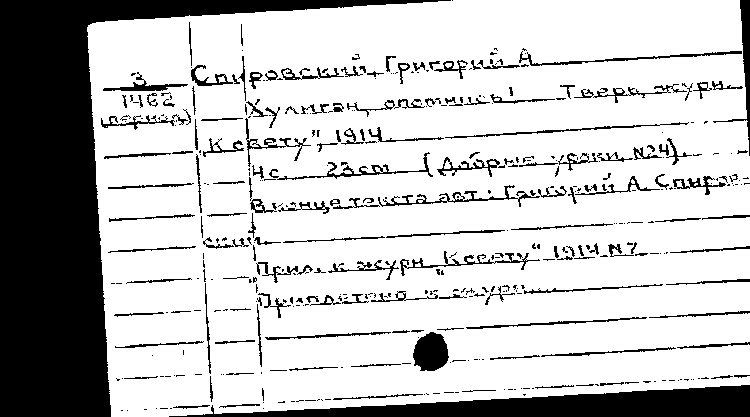 3
Спировский, Григорий А
1462
(период)
Хулиган, опомнись! Тверь, журн.
„К свету", 1914.
4с. 23см (Добрые уроки, N24).
В конце текста авт.: Григорий А. Спиров-
ский.
Прил. к журн „К свету" 1914 N7
Приплетено к журн.